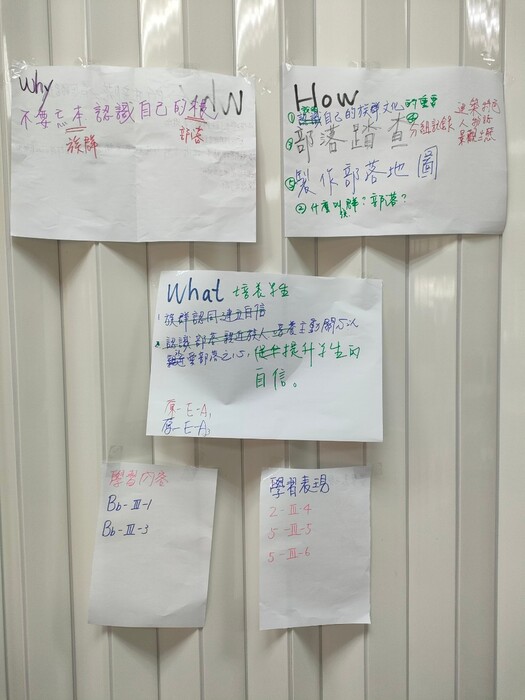 Why
不要忘本 認識自己的根
族群
部落
How
①認識自己的族群文化 的重要
③部落踏查
④分組記錄
⑤製作部落地圖
②什麼叫族群?部落?
What 培養學生
1 族群認同 建立自信
2 認識部落 親近族人 培養主動關心以
親近愛部落之心, 提升學生的
自信。
原-E-A1
原-E-A2
學習內容
Bb-Ⅲ-1
Bb-Ⅲ-3
學習表現
2-Ⅲ-4
5-Ⅲ-5
5-Ⅲ-6